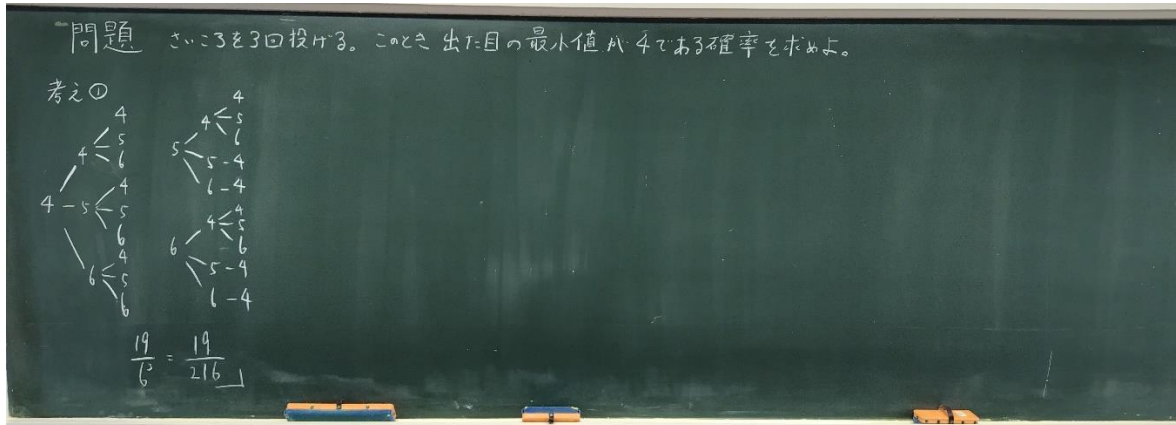 問題 さいころを3回投げる。このとき 出た目の最小値が4である確率を求めよ。
考え①
4
4
4
5
6
5
4
5
6
6
4
5
6
5
4
4
5
6
5-4
6-4
6
4
4
5
6
5-4
6-4
19/6³ = 19/216